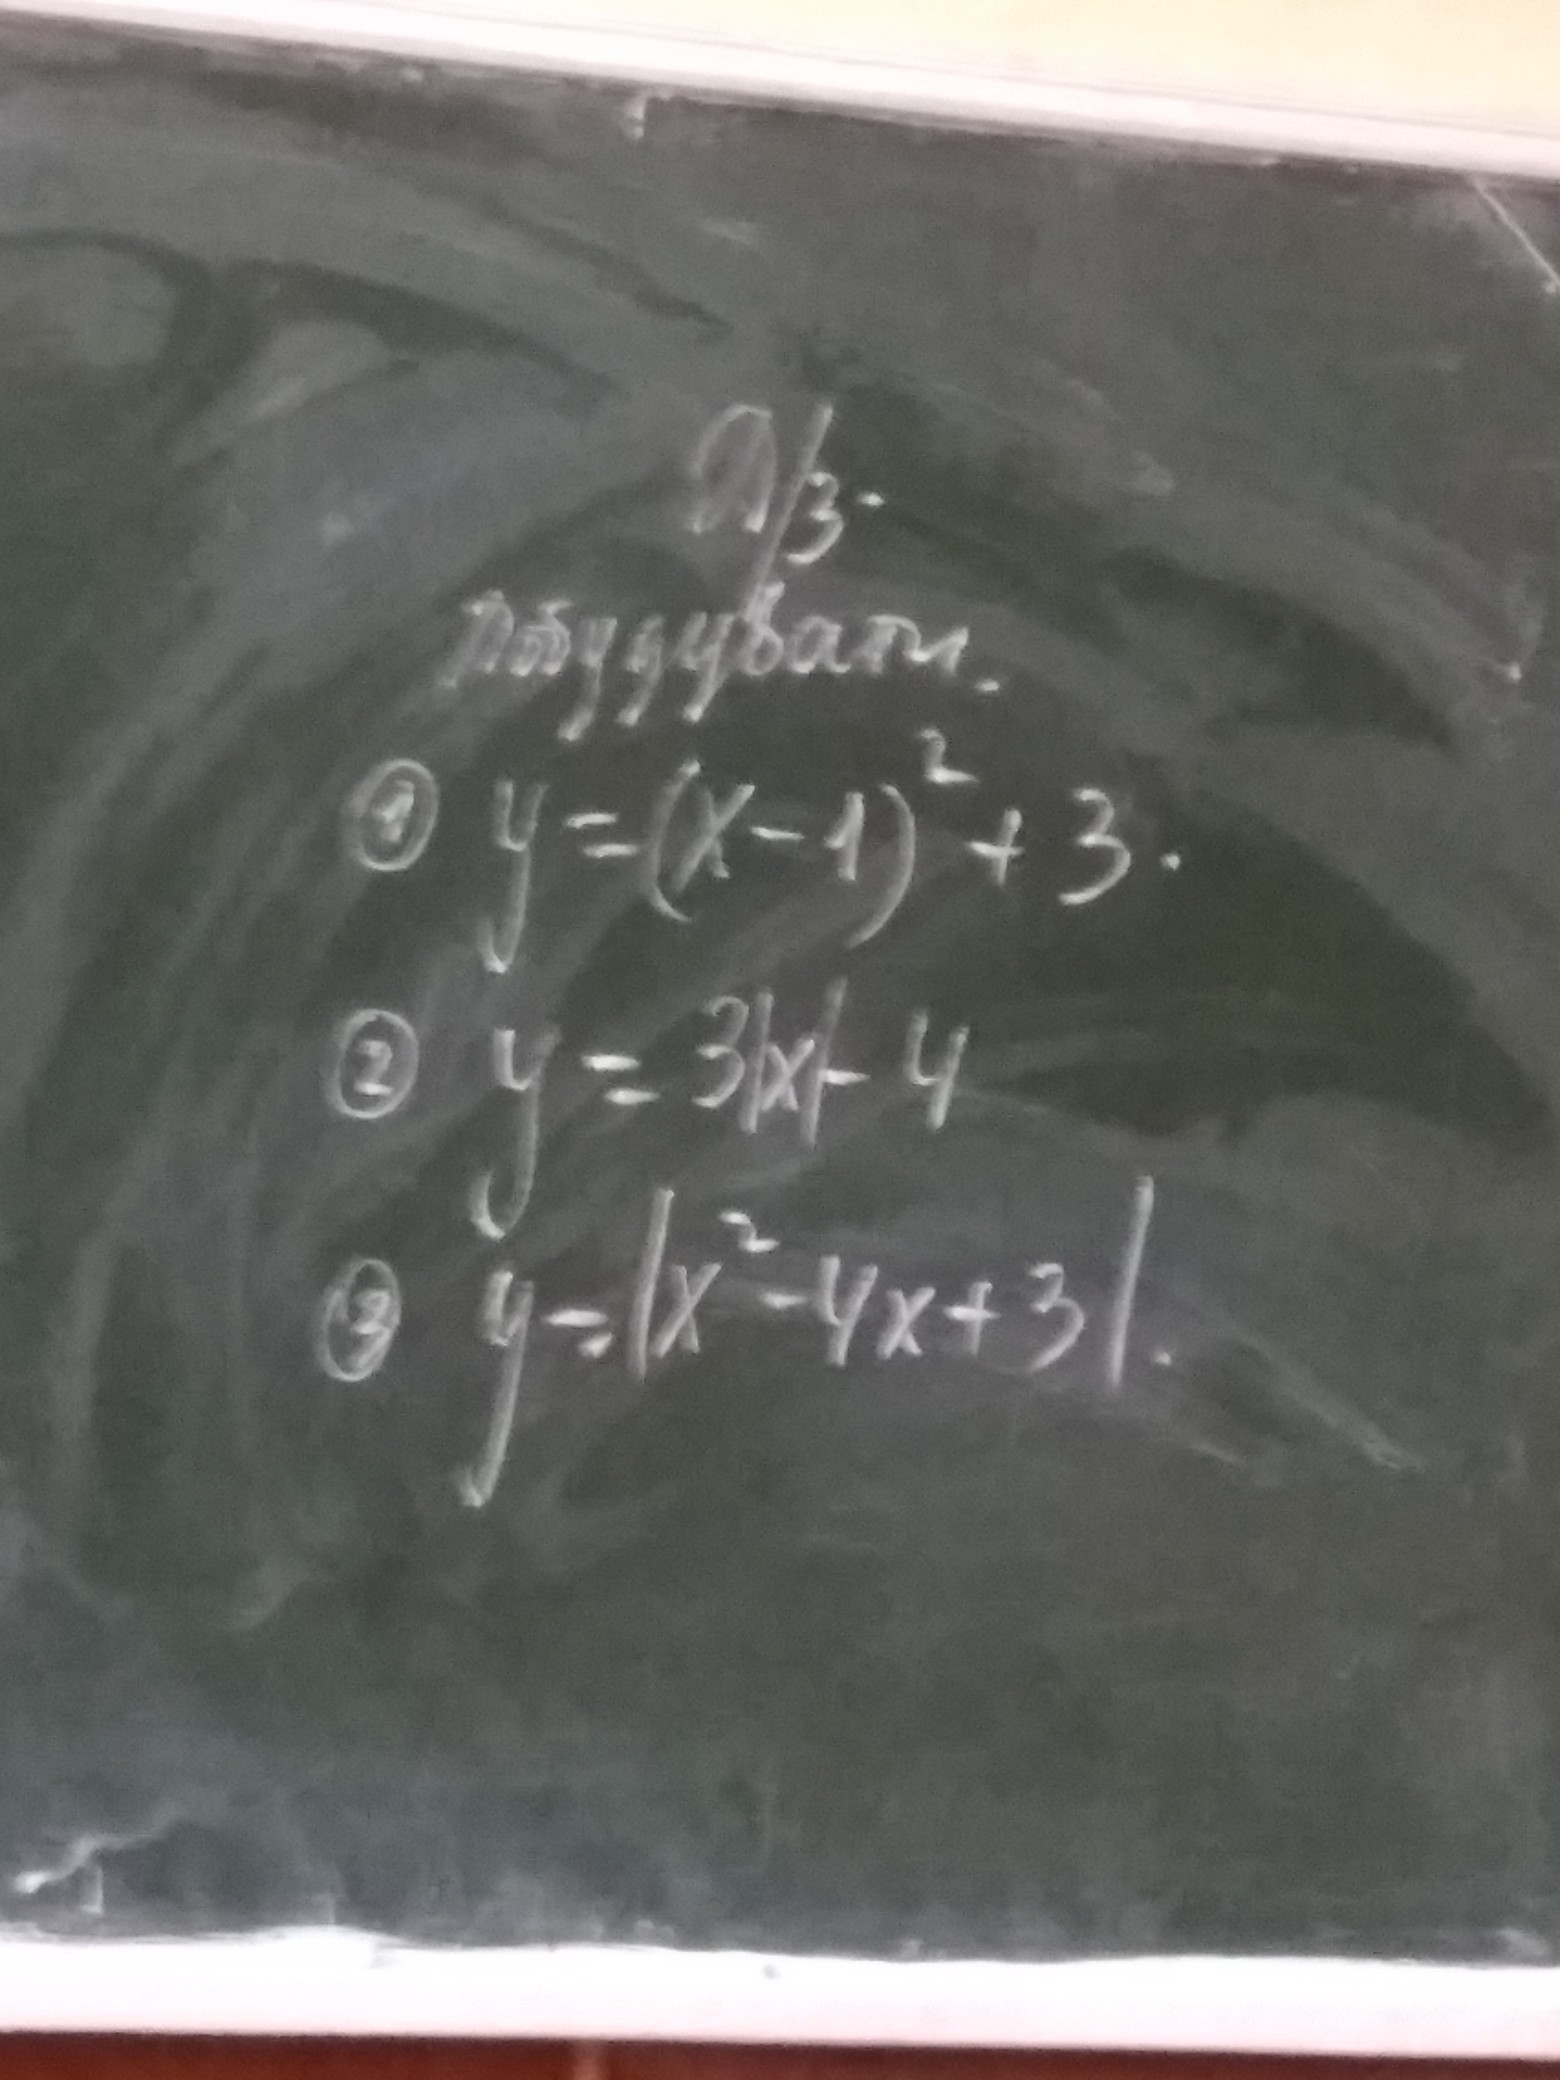 Д/з.
Побудувати.
① y = (x - 1)² + 3.
② y = 3|x| - 4
③ y = |x² - 4x + 3|.